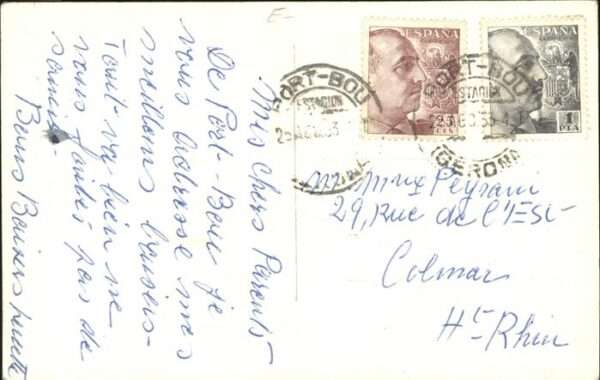 Mes Chers Parents
De Port-Bou je
vous adresse mes
meilleurs baisers
Tout va bien ne
vous faites pas de
soucis
Bons Baisers
ESPAÑA
25
CTS
ESPAÑA
1
PTA
PORT-BOU
ESTACION
PORT-BOU
GERONA
M. Mme Peyrani
29, Rue de l'Est
Colmar
Ht-Rhin